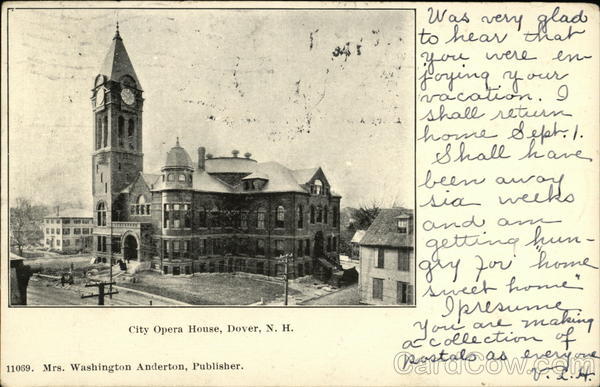 Was very glad
to hear that
you were en-
joying your
vacation. I
shall return
home Sept. 1.
Shall have
been away
six weeks
and am
getting hun-
gry for "home
sweet home"
I presume
you are making
a collection of
postals as everyone
else is.
V. L. H.
City Opera House, Dover, N. H.
11069. Mrs. Washington Anderton, Publisher.
CardCow.com